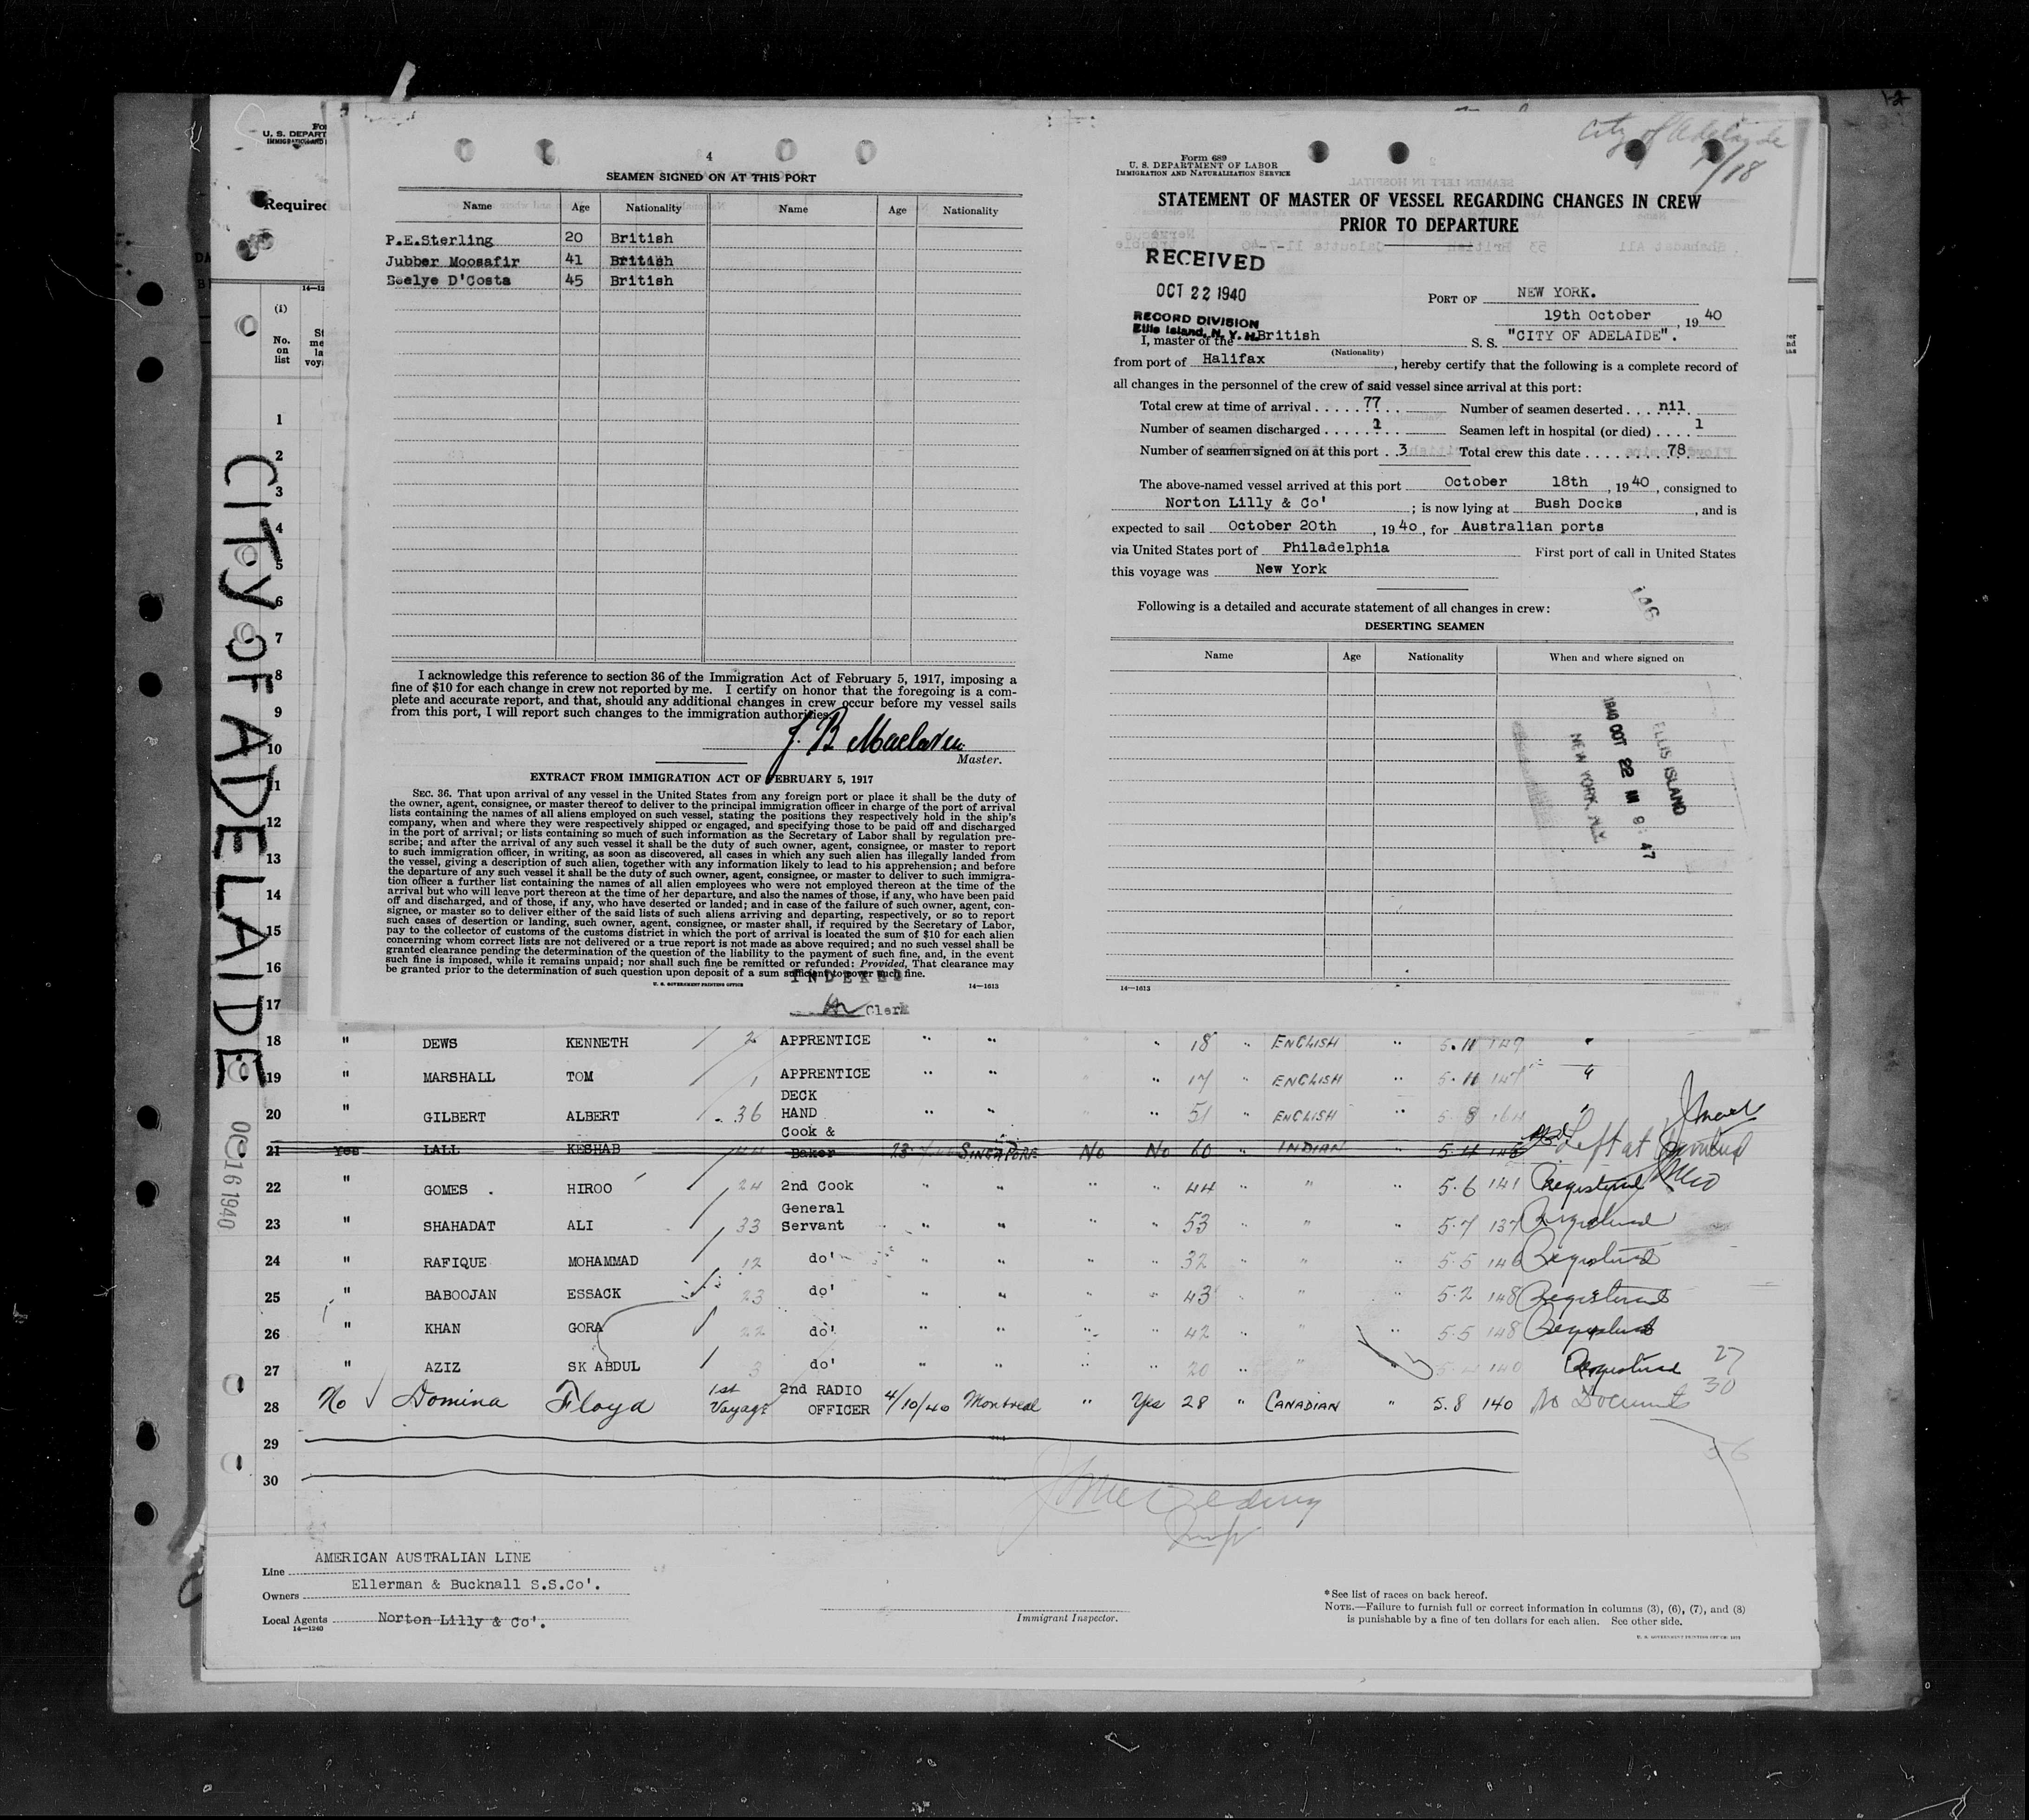 4
SEAMEN SIGNED ON AT THIS PORT
Name Age Nationality Name Age Nationality
P.E.Sterling 20 British
Jubber Moosafir 41 British
Seelye D'Costa 45 British
I acknowledge this reference to section 36 of the Immigration Act of February 5, 1917, imposing a
fine of $10 for each change in crew not reported by me. I certify on honor that the foregoing is a com-
plete and accurate report, and that, should any additional changes in crew occur before my vessel sails
from this port, I will report such changes to the immigration authorities.
J. B. Maclaren
Master.
EXTRACT FROM IMMIGRATION ACT OF FEBRUARY 5, 1917
SEC. 36. That upon arrival of any vessel in the United States from any foreign port or place it shall be the duty of
the owner, agent, consignee, or master thereof to deliver to the principal immigration officer in charge of the port of arrival
lists containing the names of all aliens employed on such vessel, stating the positions they respectively hold in the ship's
company, when and where they were respectively shipped or engaged, and specifying those to be paid off and discharged
in the port of arrival; or lists containing so much of such information as the Secretary of Labor shall by regulation pre-
scribe; and after the arrival of any such vessel it shall be the duty of such owner, agent, consignee, or master to report
to such immigration officer, in writing, as soon as discovered, all cases in which any such alien has illegally landed from
the vessel, giving a description of such alien, together with any information likely to lead to his apprehension; and before
the departure of any such vessel it shall be the duty of such owner, agent, consignee, or master to deliver to such immigra-
tion officer a further list containing the names of all alien employees who were not employed thereon at the time of the
arrival but who will leave port thereon at the time of her departure, and also the names of those, if any, who have been paid
off and discharged, and of those, if any, who have deserted or landed; and in case of the failure of such owner, agent, con-
signee, or master so to deliver either of the said lists of such aliens arriving and departing, respectively, or so to report
such cases of desertion or landing, such owner, agent, consignee, or master shall, if required by the Secretary of Labor,
pay to the collector of customs of the customs district in which the port of arrival is located the sum of $10 for each alien
concerning whom correct lists are not delivered or a true report is not made as above required; and no such vessel shall be
granted clearance pending the determination of the question of the liability to the payment of such fine, and, in the event
such fine is imposed, while it remains unpaid; nor shall such fine be remitted or refunded: Provided, That clearance may
be granted prior to the determination of such question upon deposit of a sum sufficient to cover such fine.
U. S. GOVERNMENT PRINTING OFFICE 14—1613
INDEXED
Clerk
City of Adelaide
/18
Form 689
U. S. DEPARTMENT OF LABOR
IMMIGRATION AND NATURALIZATION SERVICE
STATEMENT OF MASTER OF VESSEL REGARDING CHANGES IN CREW
PRIOR TO DEPARTURE
RECEIVED
OCT 22 1940
RECORD DIVISION
Ellis Island, N. Y. H.
PORT OF NEW YORK.
19th October, 1940
I, master of the British S. S. "CITY OF ADELAIDE".
(Nationality)
from port of Halifax, hereby certify that the following is a complete record of
all changes in the personnel of the crew of said vessel since arrival at this port:
Total crew at time of arrival 77 Number of seamen deserted nil
Number of seamen discharged 1 Seamen left in hospital (or died) 1
Number of seamen signed on at this port 3 Total crew this date 78
The above-named vessel arrived at this port October 18th, 1940, consigned to
Norton Lilly & Co'; is now lying at Bush Docks, and is
expected to sail October 20th, 1940, for Australian ports
via United States port of Philadelphia First port of call in United States
this voyage was New York
Following is a detailed and accurate statement of all changes in crew:
146
DESERTING SEAMEN
Name Age Nationality When and where signed on
ELLIS ISLAND
1940 OCT 22 9:47
NEW YORK, N.Y.
14—1613
U. S. DEPART
Required
(1)
No. on list
1
2
3
4
5
6
7
8
9
10
11
12
13
14
15
16
17
CITY OF ADELAIDE
16 1940
18 " DEWS KENNETH 2 APPRENTICE " " " 18 " ENGLISH " 5.11 149 "
19 " MARSHALL TOM 1 APPRENTICE " " " 17 " ENGLISH " 5.11 147 "
20 " GILBERT ALBERT 36 DECK HAND " " " 51 " ENGLISH " 5 8 "
21 Yes LALL KESHAB 44 Cook & Baker 23 SINGAPORE No No 60 " INDIAN 5.4 Left at
22 " GOMES HIROO 24 2nd Cook " " " " 44 " " " 5.6 141 Registered
23 " SHAHADAT ALI 33 General Servant " " " " 53 " " " 5.7 137 Registered
24 " RAFIQUE MOHAMMAD 12 do' " " " " 32 " " " 5.5 146 Registered
25 " BABOOJAN ESSACK 23 do' " " " " 43 " " " 5.2 148 Registered
26 " KHAN GORA 22 do' " " " " 42 " " " 5.5 148 Registered
27 " AZIZ SK ABDUL 3 do' " " " " 20 " " " 140 Registered 27
28 No Domina Floyd 1st Voyage 2nd RADIO OFFICER 4/10/40 Montreal " Yes 28 " CANADIAN " 5.8 140 No Documents 30
29
30
Line AMERICAN AUSTRALIAN LINE
Owners Ellerman & Bucknall S.S.Co'.
Local Agents Norton Lilly & Co'.
14—1240
Immigrant Inspector.
* See list of races on back hereof.
NOTE.—Failure to furnish full or correct information in columns (3), (6), (7), and (8)
is punishable by a fine of ten dollars for each alien. See other side.